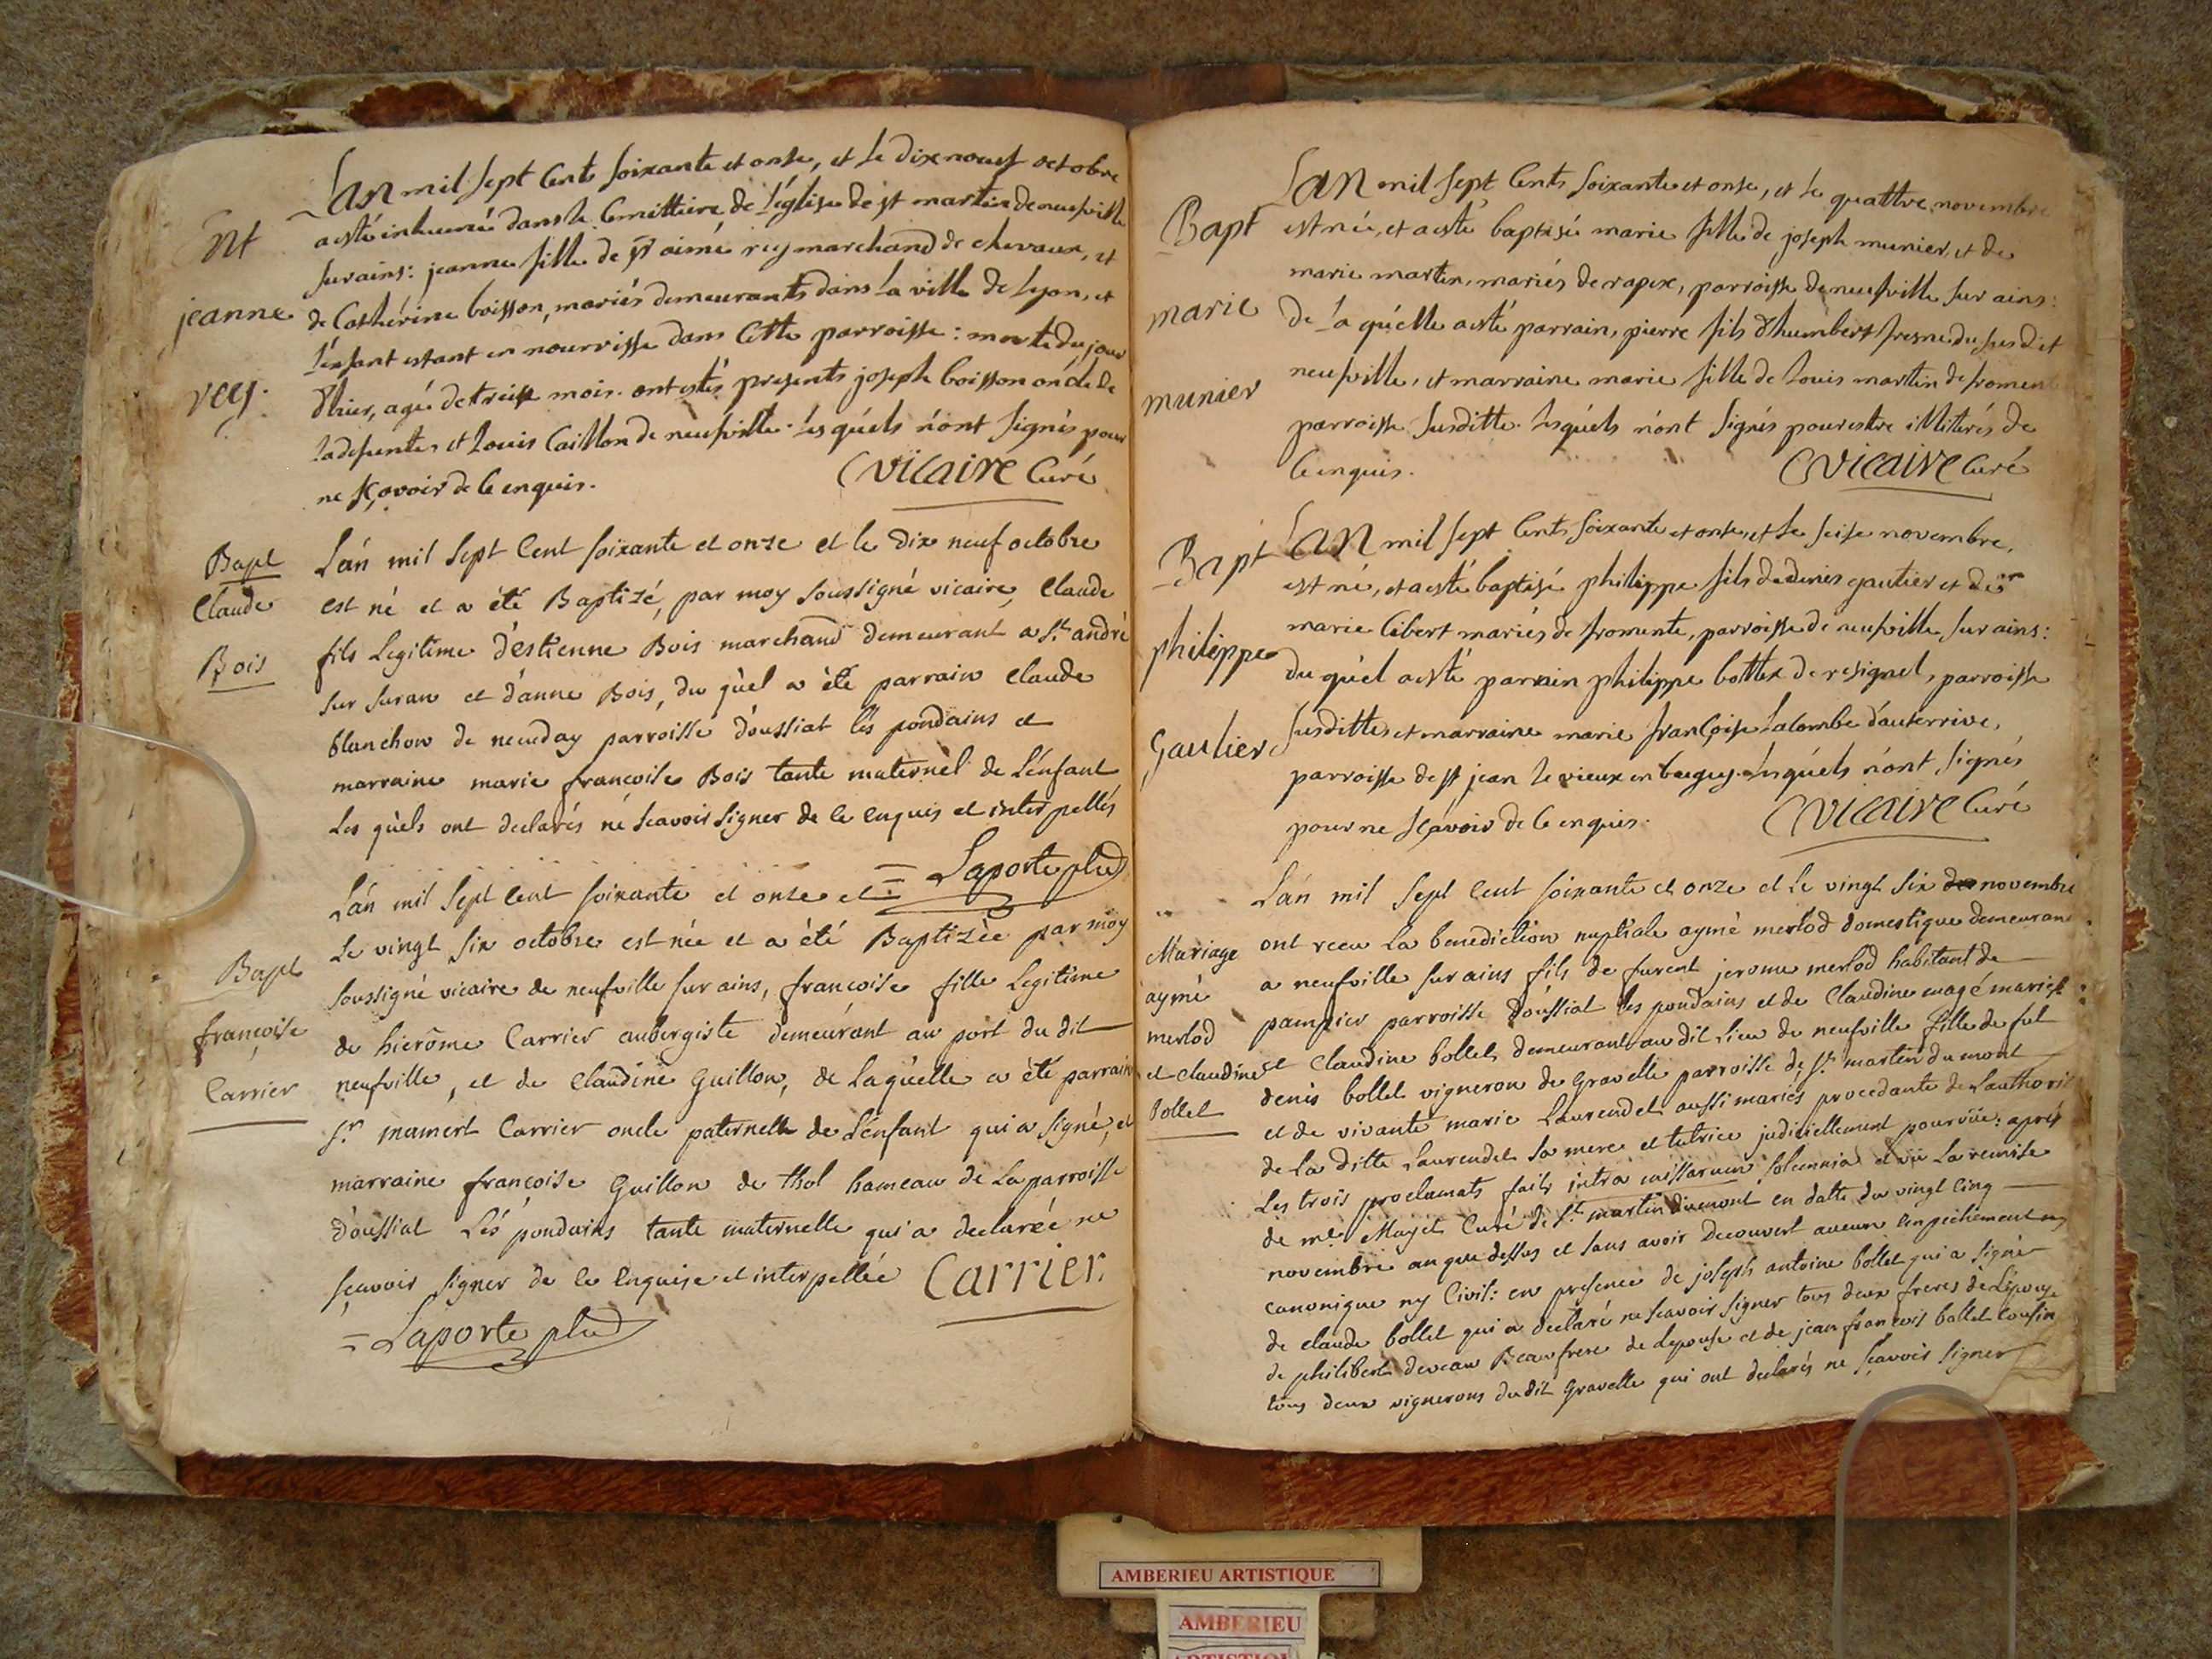 Ent
jeanne
rey.
Lan mil sept Cents soixante et onse, et le dix neuf octobre
a esté inhumé dans le Cemittiere de l'église de st martin de neufville
sur ains: jeanne fille de sr aimé rey marchand de chevaux, et
de Cathérine boisson, mariés demeurants dans la ville de Lyon, et
l'enfant estant en nourrisse dans Cette parroisse: morte du jour
d'hier, agé de treise mois. ont estés presents joseph boisson oncle de
la defunte, et Louis Caillon de neufville. les quéls n'ont signés pour
ne sçavoir de Ce enquis.
vicaire Curé
Bapt
Claude
Bois
L'an mil sept Cent soixante et onze et le dix neuf octobre
est né et a été Baptizé, par moy soussigné vicaire, Claude
fils Legitime d'estienne Bois marchand demeurant a st. andré
sur suran et d'anne Bois, du quel a été parrain Claude
blanchon de neuday parroisse d'oussiat lés pondains et
marraine marie françoise Bois tante maternel de L'enfant
Les quels ont declarés né scavoir signer de ce enquis et interpellés
= Laporte plud
Bapt
françoise
Carrier
L'an mil sept cent soixante et onze et =
Le vingt six octobre est née et a été Baptizèe par moy
soussigné vicaire de neufville sur ains, françoise fille Legitime
de hierôme Carrier aubergiste demeurant au port du dit
neufville, et de Claudine Guillon, de Laquelle a été parrain
sr. mamert Carrier oncle paternelle de L'enfant qui a signé, et
marraine françoise Guillon de thol hameau de La parroisse
d'oussiat Lés pondains tante maternelle qui a declarée ne
sçavoir signer de ce enquise et interpellée Carrier.
= Laporte plud
Bapt
marie
munier
Lan mil sept Cents soixante et onse, et le quattre novembre
est née, et a esté baptisée marie fille de joseph munier, et de
marie martin, mariés de rapex, parroisse de neufville sur ains:
de la quélle a esté parrain, pierre fils d'humbert fresne du susdit
neufville, et marraine marie fille de Louis martin de froment
parroisse susditte. les quéls n'ont signés pour estre illiterés de
Ce enquis.
vicaire Curé
Bapt
philippe
Gautier
Lan mil sept Cents soixante et onse, et le seise novembre,
est né, et a esté baptisé philippe fils de denis gautier et de
marie Cibert mariés de fromente, parroisse de neufville sur ains:
du quél a esté parrain philippe bottex de resignel, parroisse
susditte, et marraine marie françoise Lalombe d'auterrive,
parroisse de st jean le vieux en bugey. les quéls n'ont signés
pour ne sçavoir de Ce enquis.
vicaire Curé
Mariage
aymé
merlod
et claudine
bollet
L'an mil sept cent soixante et onze et Le vingt six novembre
ont recu La benediction nuptiale aymé merlod domestique demeurant
a neufville sur ains fils de furent jerome merlod habitant de
pampier parroisse d'oussiat les pondains et de Claudine mariés
et Claudine bollet demeurant au dit Lieu de neufville fille de fut
denis bollet vigneron de Gravelle parroisse de st. martin du mont
et de vivante marie Laurendet aussi mariés procedante de Lauthorité
de La ditte Laurendet sa mere et tutrice judiciellement pourvüe: aprés
Les trois proclamats faits intra missarum solemnia et vü La remise
de mre. Mayet Curé de st. martin dumont en datte du vingt cinq
novembre an que dessus et sans avoir decouvert aucun empêchement
canonique ny Civil: en presence de joseph antoine bollet qui a signé
de claude bollet qui a declaré ne scavoir signer tous deux freres de L'épouse
de philibert deveau Beau frere de Lepouse et de jean françois bollet cousin
tous deux vignerons du dit Gravelle qui ont declarés ne sçavoir signer
AMBERIEU ARTISTIQUE
AMBERIEU
ARTISTIQUE